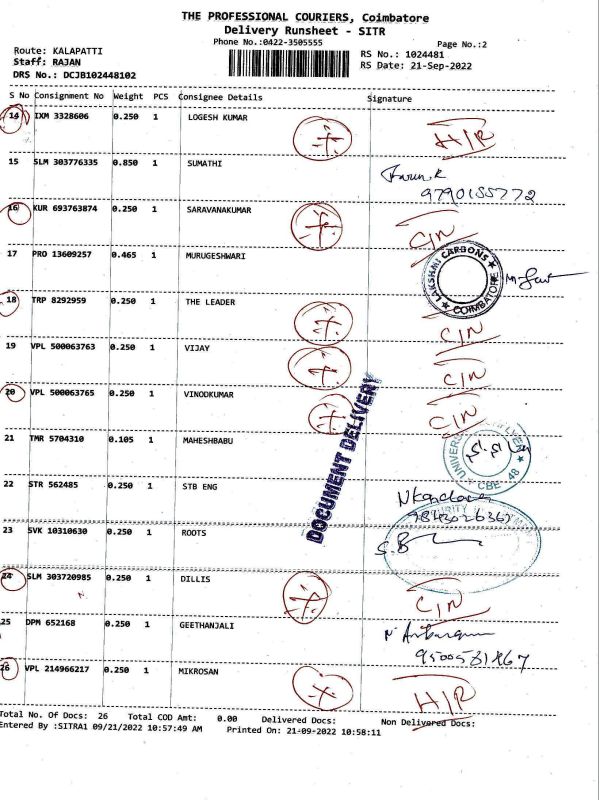 THE PROFESSIONAL COURIERS, Coimbatore
Delivery Runsheet - SITR
Phone No.:0422-3505555
Page No.:2
Route: KALAPATTI
Staff: RAJAN
DRS No.: DCJB102448102
RS No.: 1024481
RS Date: 21-Sep-2022
S No Consignment No Weight PCS Consignee Details Signature
14 IXM 3328606 0.250 1 LOGESH KUMAR H/R
15 SLM 303776335 0.850 1 SUMATHI
9790155772
16 KUR 693763874 0.250 1 SARAVANAKUMAR C/N
17 PRO 13609257 0.465 1 MURUGESHWARI
LAKSHMI CARBONS COIMBATORE
18 TRP 8292959 0.250 1 THE LEADER C/N
19 VPL 500063763 0.250 1 VIJAY C/N
20 VPL 500063765 0.250 1 VINODKUMAR C/N
DOCUMENT DELIVERY
21 TMR 5704310 0.105 1 MAHESHBABU
CBE 48
22 STR 562485 0.250 1 STB ENG
23 SVK 10310630 0.250 1 ROOTS
24 SLM 303720985 0.250 1 DILLIS C/N
25 DPM 652168 0.250 1 GEETHANJALI
26 VPL 214966217 0.250 1 MIKROSAN H/R
Total No. Of Docs: 26 Total COD Amt: 0.00 Delivered Docs: Non Delivered Docs:
Entered By :SITRA1 09/21/2022 10:57:49 AM Printed On: 21-09-2022 10:58:11